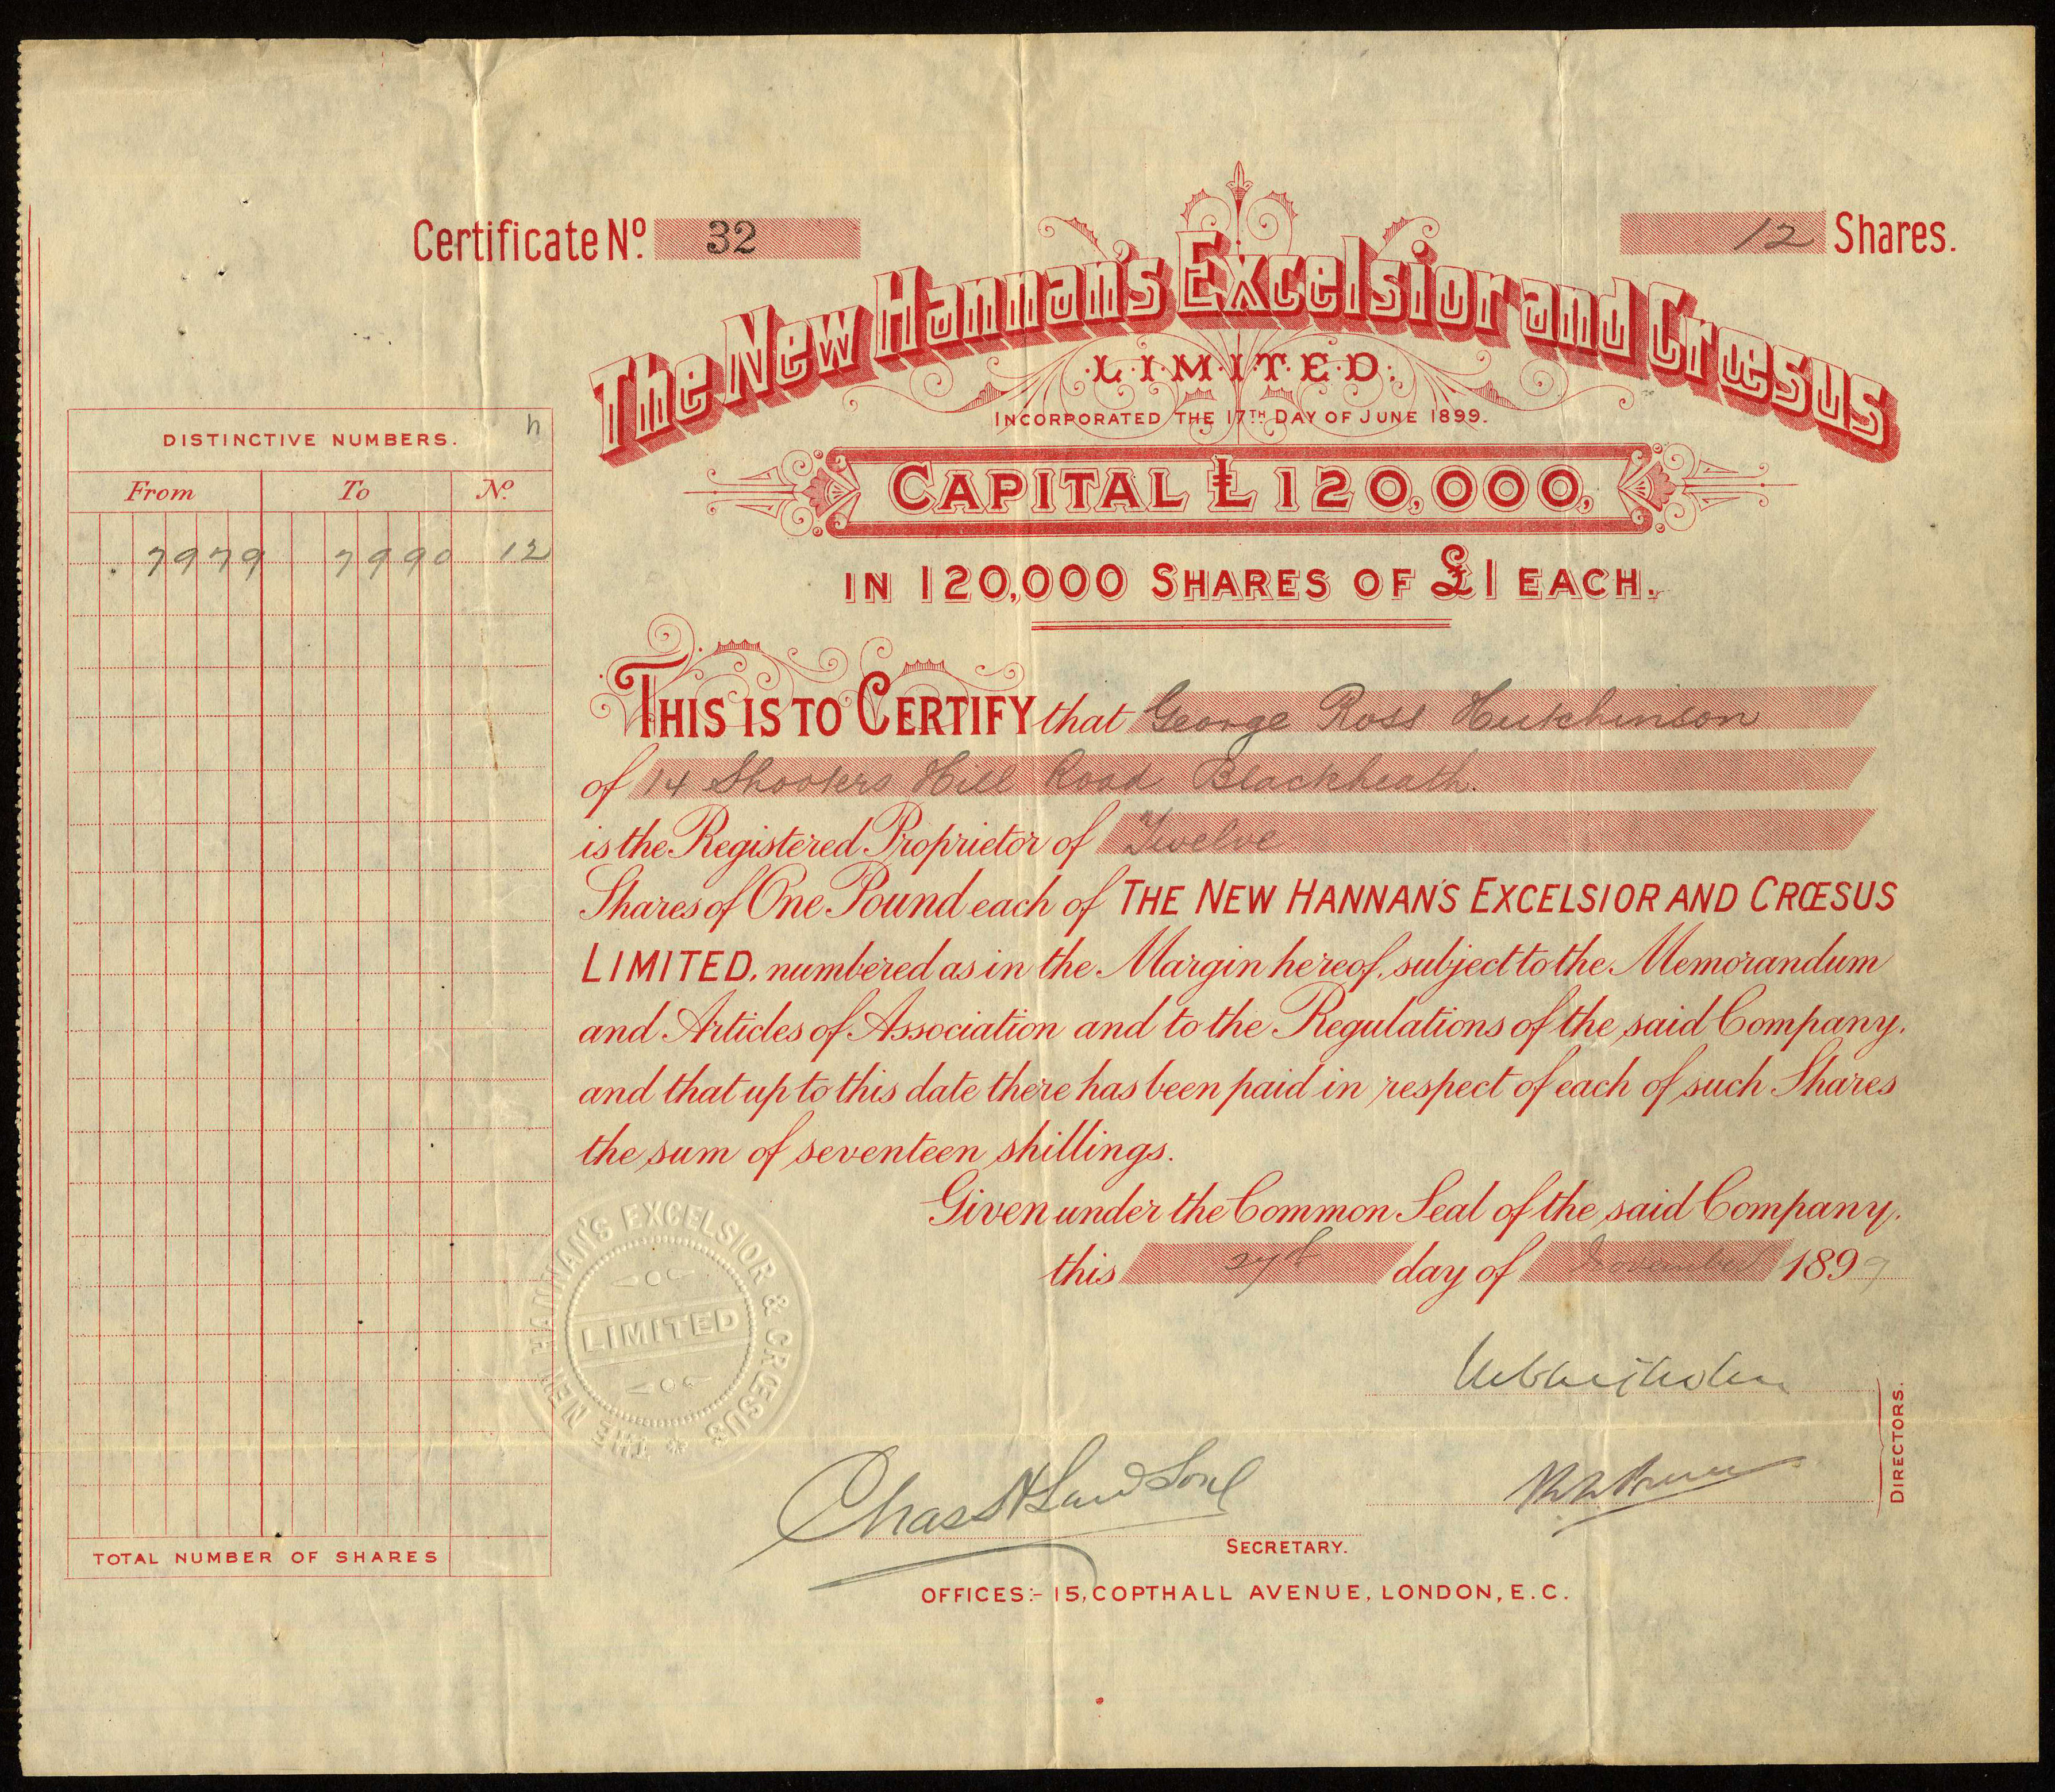 Certificate Nº. 32
12 Shares.
The New Hannan's Excelsior and Crœsus
LIMITED.
INCORPORATED THE 17TH DAY OF JUNE 1899.
CAPITAL £120,000,
IN 120,000 SHARES OF £1 EACH.
DISTINCTIVE NUMBERS.
From To Nº.
7979 7990 12
TOTAL NUMBER OF SHARES
THIS IS TO CERTIFY that George Ross Hutchinson
of 14 Shooters Hill Road Blackheath.
is the Registered Proprietor of Twelve
Shares of One Pound each of THE NEW HANNAN'S EXCELSIOR AND CRŒSUS
LIMITED, numbered as in the Margin hereof, subject to the Memorandum
and Articles of Association and to the Regulations of the said Company,
and that up to this date there has been paid in respect of each of such Shares
the sum of seventeen shillings.
Given under the Common Seal of the said Company,
this 27th day of November 1899
THE NEW HANNAN'S EXCELSIOR & CRŒSUS
LIMITED
DIRECTORS.
SECRETARY.
OFFICES:- 15, COPTHALL AVENUE, LONDON, E.C.